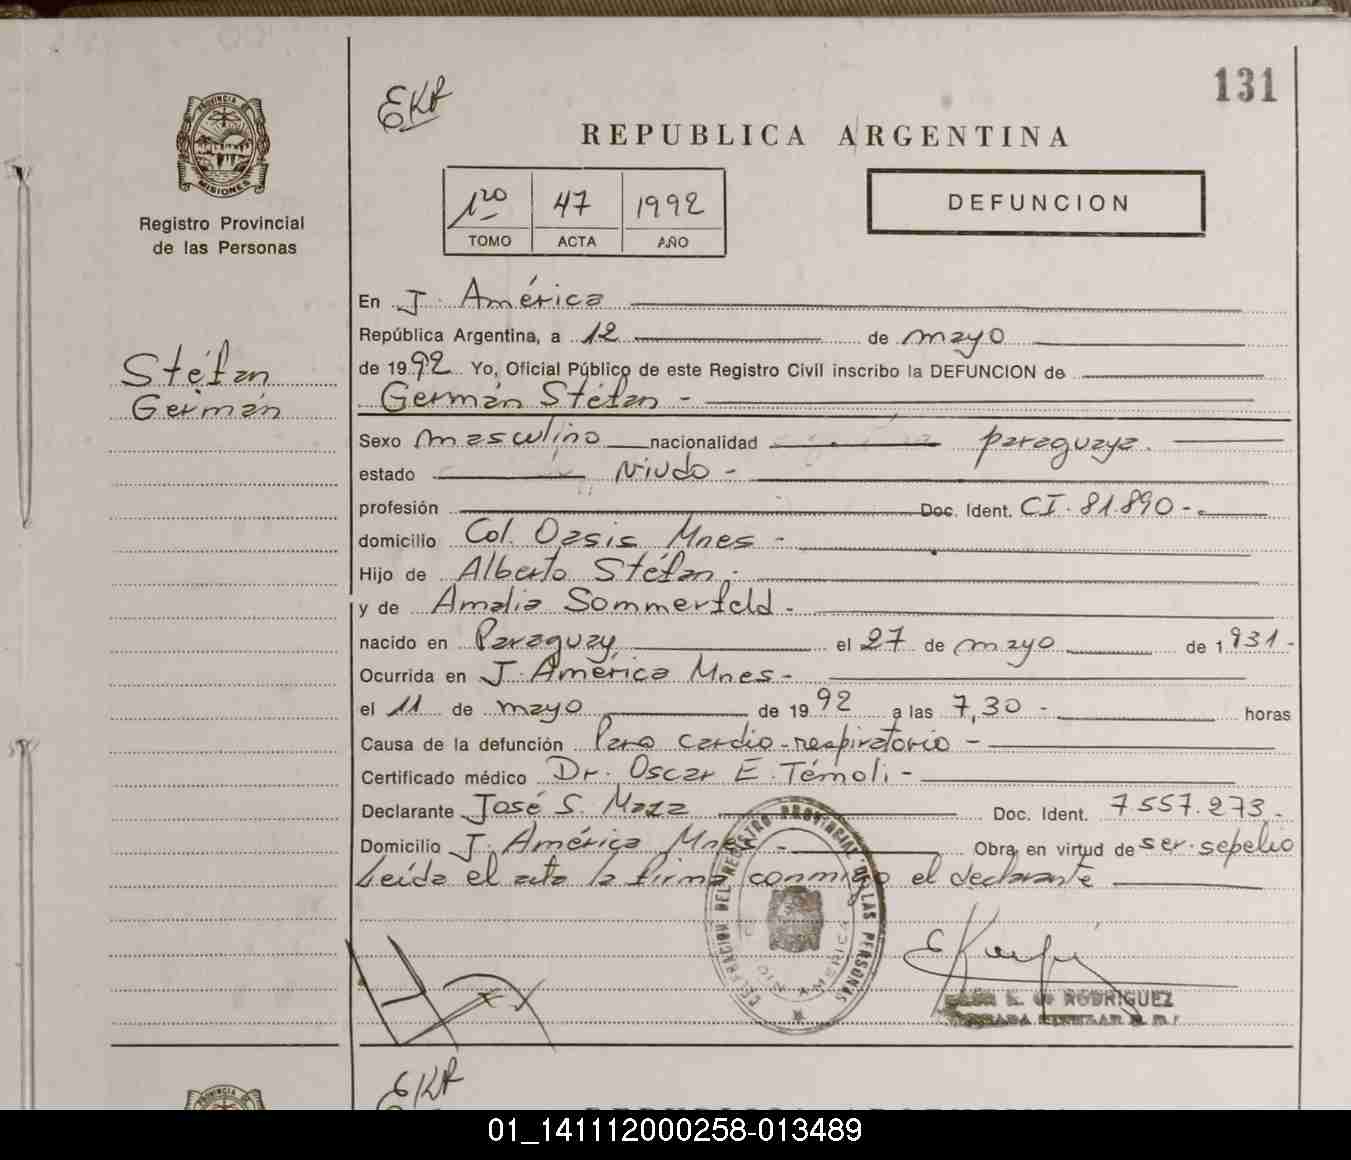 131
EKR
REPUBLICA ARGENTINA
PROVINCIA DE
MISIONES
Registro Provincial
de las Personas
1ro 47 1992
TOMO ACTA AÑO
DEFUNCION
En J. América
República Argentina, a 12 de mayo
Stéfan
Germán
de 1992 Yo, Oficial Público de este Registro Civil inscribo la DEFUNCION de
Germán Stéfan -
Sexo masculino nacionalidad paraguaya.
estado viudo -
profesión Doc. Ident. CI. 81.890 -
domicilio Col. Oasis Mnes -
Hijo de Alberto Stéfan.
y de Amalia Sommerfeld -
nacido en Paraguay el 27 de mayo de 1931 -
Ocurrida en J. América Mnes -
el 11 de mayo de 1992 a las 7,30 - horas
Causa de la defunción Paro cardio-respiratorio -
Certificado médico Dr. Oscar E. Témoli -
Declarante José S. Maza Doc. Ident. 7557.273.-
Domicilio J. América Mnes - Obra en virtud de ser. sepelio
Leída el acta la firma conmigo el declarante
DEL REGISTRO PROVINCIAL DE LAS PERSONAS
AMERICA
RODRIGUEZ
EKR
PROVINCIA DE
01_141112000258-013489